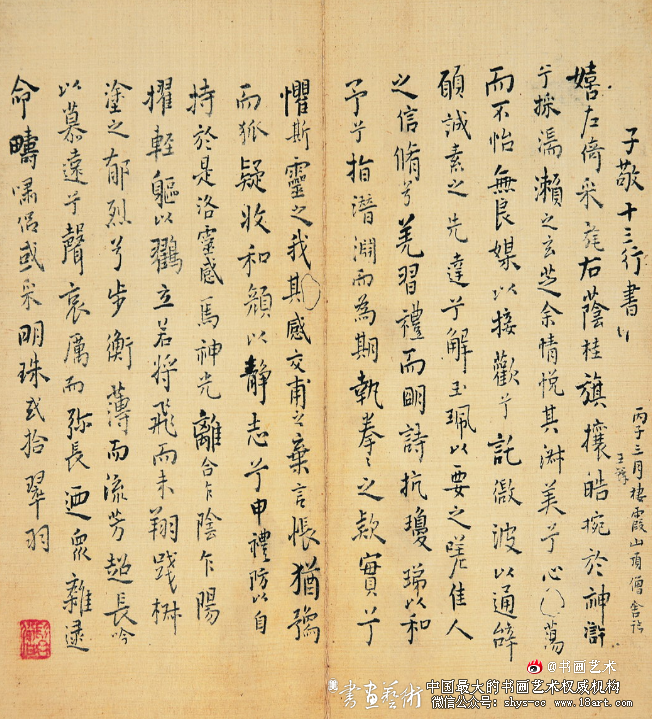 子敬十三行書
嬉左倚采旄右蔭桂旗攘皓捥於神滸
兮採湍瀨之玄芝余情悅其淋美兮心蕩
而不怡無良媒以接歡兮託微波以通辭
願誠素之先達兮解玉珮以要之嗟佳人
之信脩兮羌習禮而明詩抗瓊珶以和
予兮指潛淵而為期執拳〻之欵實兮
懼斯靈之我其感交甫之棄言悵猶豫
而狐疑收和顏以靜志兮申禮防以自
持於是洛靈感焉神光離合乍陰乍陽
擢輕軀以鶴立若將飛而未翔踐椒
塗之郁烈兮步衡薄而流芳超長吟
以慕遠兮聲哀厲而弥長迺衆雜遝
命疇嘯侶或采明珠或拾翠羽
丙子三月棲霞山頂僧舍
@书画艺术
書畫藝術
中国最大的书画艺术权威机构
微信公众号:shys-cc www.18art.com